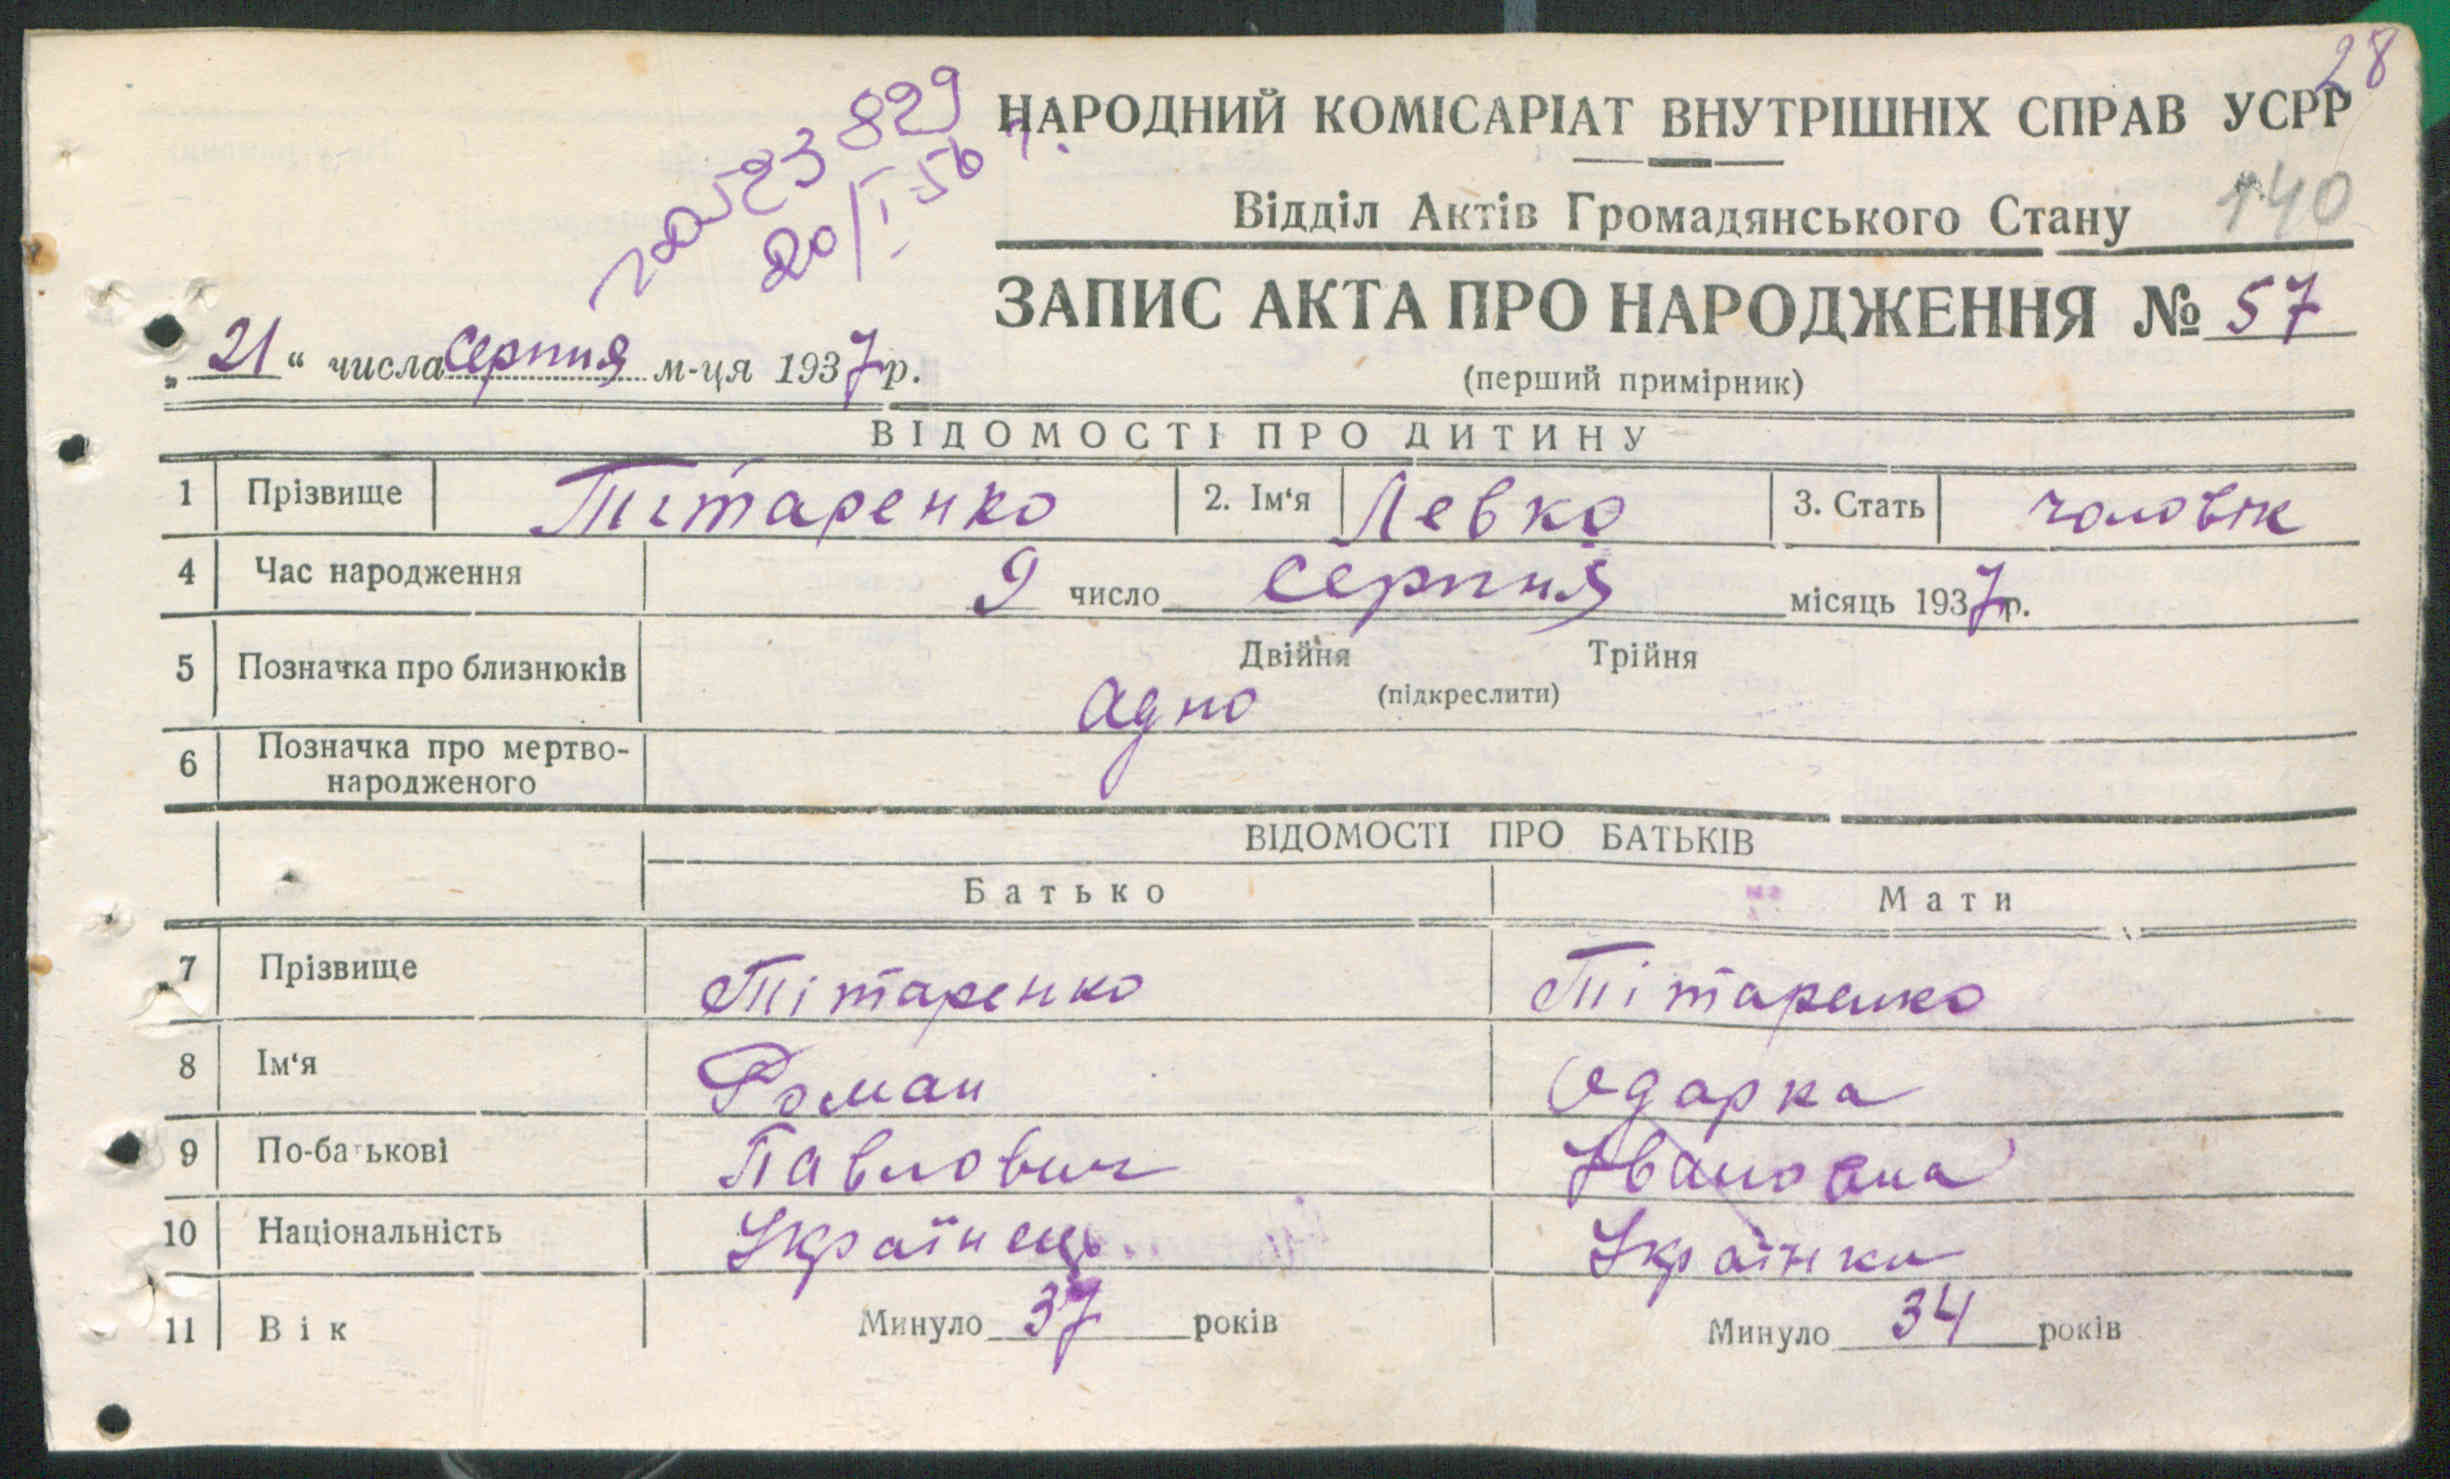 28
НАРОДНИЙ КОМІСАРІАТ ВНУТРІШНІХ СПРАВ УСРР
829
20/I-56 р.
Відділ Актів Громадянського Стану
140
ЗАПИС АКТА ПРО НАРОДЖЕННЯ № 57
„21“ числа серпня м-ця 1937 р.
(перший примірник)
ВІДОМОСТІ ПРО ДИТИНУ
1 Прізвище Тітаренко 2. Ім'я Левко 3. Стать чоловік
4 Час народження 9 число серпня місяць 1937 р.
5 Позначка про близнюків Двійня Трійня
(підкреслити)
адно
6 Позначка про мертво-
народженого
ВІДОМОСТІ ПРО БАТЬКІВ
Батько Мати
7 Прізвище Тітаренко Тітаренко
8 Ім'я Роман Одарка
9 По-батькові Павлович Івановна
10 Національність Українець Українка
11 Вік Минуло 37 років Минуло 34 років